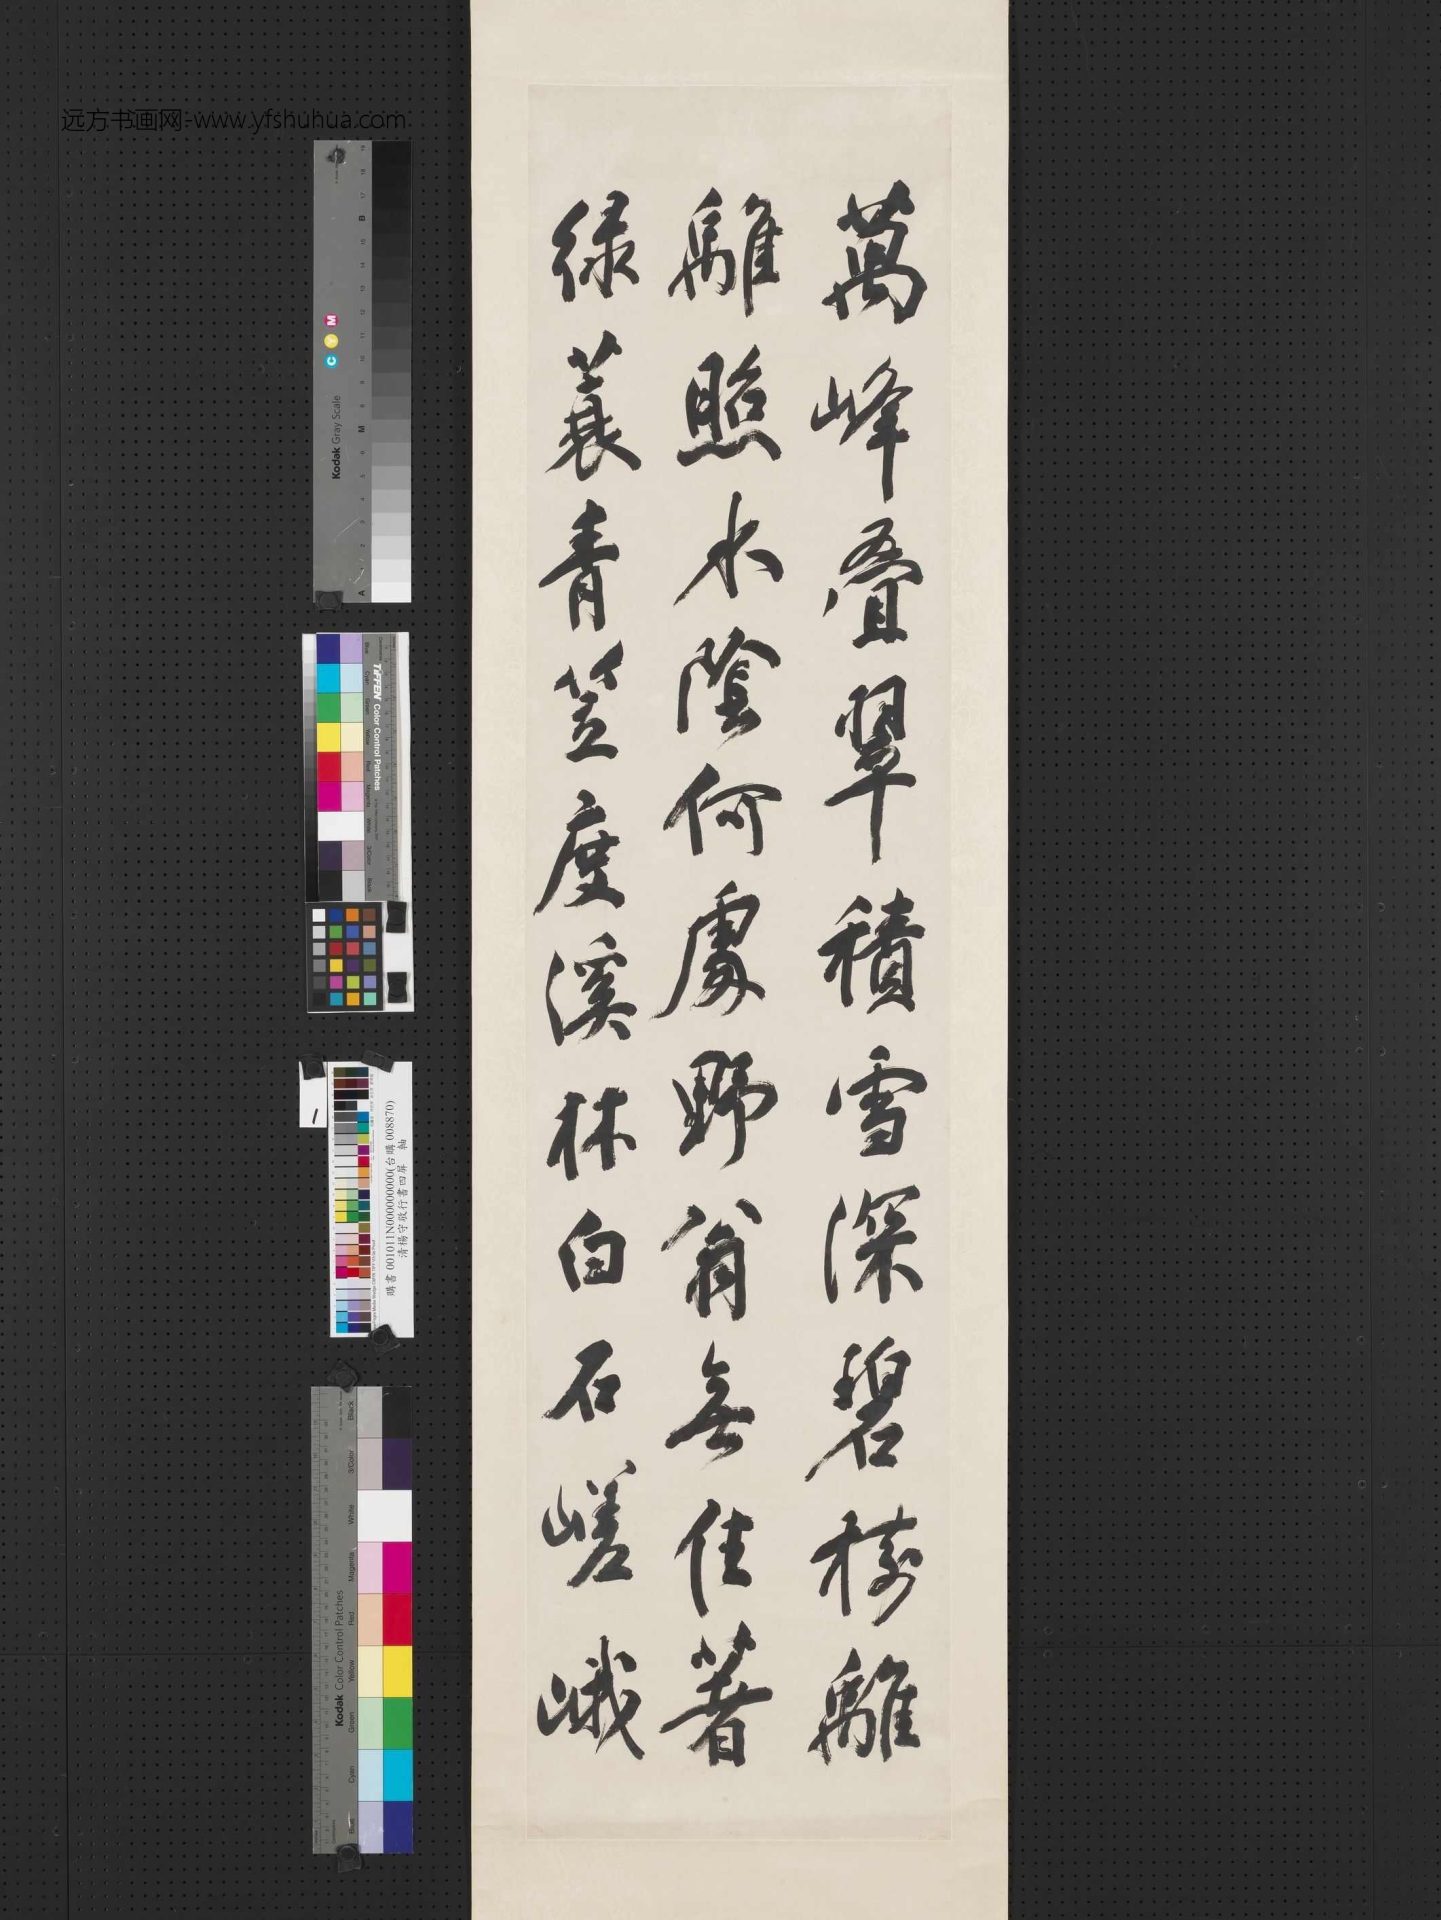 远方书画网-www.yfshuhua.com
萬峰叠翠積雪深碧樹離
離照水陰何處野翁無佳著
绿蓑青笠度溪林白石嵯峨
Kodak Gray Scale
C Y M
A M B
TIFFEN Color Control Patches
購書 001011N000000000(台購 008870)
清楊守敬行書四屏 軸
Kodak Color Control Patches
Blue Cyan Green Yellow Red Magenta White 3/Color Black